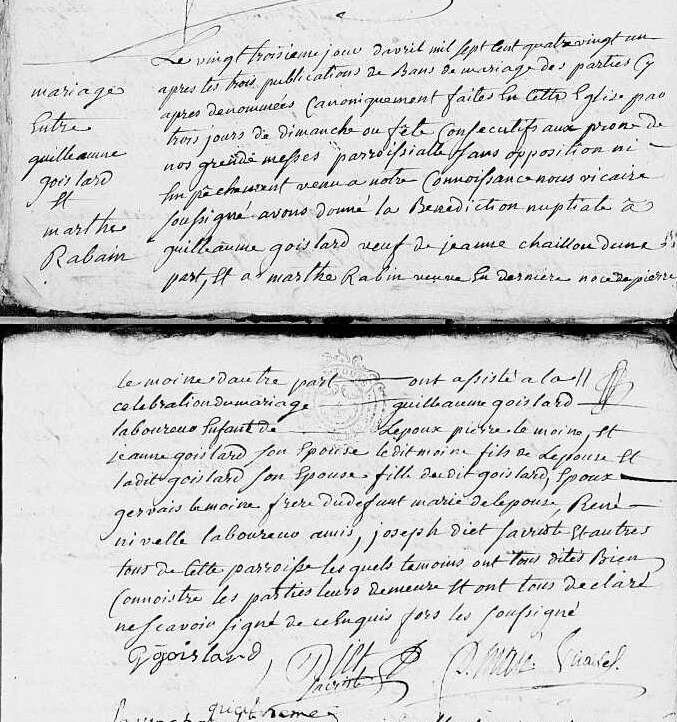 mariage
Entre
guilleaume
goislard
Et
marthe
Rabain
Le vingt troisieme jour d'avril mil sept cent quatre vingt un
apres les trois publications de Bans de mariage des parties Cy
apres denommées Canoniquement faites En Cette Eglise par
trois jours de dimanche ou fête Consecutifs aux prone de
nos grande messes parroissialle sans opposition ni
Empêchement venu a notre Connoissance nous vicaire
soussigné avons donné la Benediction nuptiale à
guilleaume goislard veuf de jeanne chaillou dune
part, Et a marthe Rabin veuve En derniere noce de pierre
le moine d'autre part ont assisté a la
celebration du mariage guilleaume goislard
laboureur Enfant de Lepoux pierre le moine, Et
jeanne goislard son Epouse le dit moine fils de Lepouse Et
la dit goislard son Epouse fille du dit goislard, Epoux
gervais le moine frere du defunt marie de lepouse, René
nivelle laboureur amis, joseph diet sacriste Et autres
tous de Cette parroisse les quels temoins ont tous dites Bien
Connoistre les parties leurs demeure Et ont tous declaré
ne scavoir signé de ce Enquis fors les soussigné
G goislard
Diet
sacriste